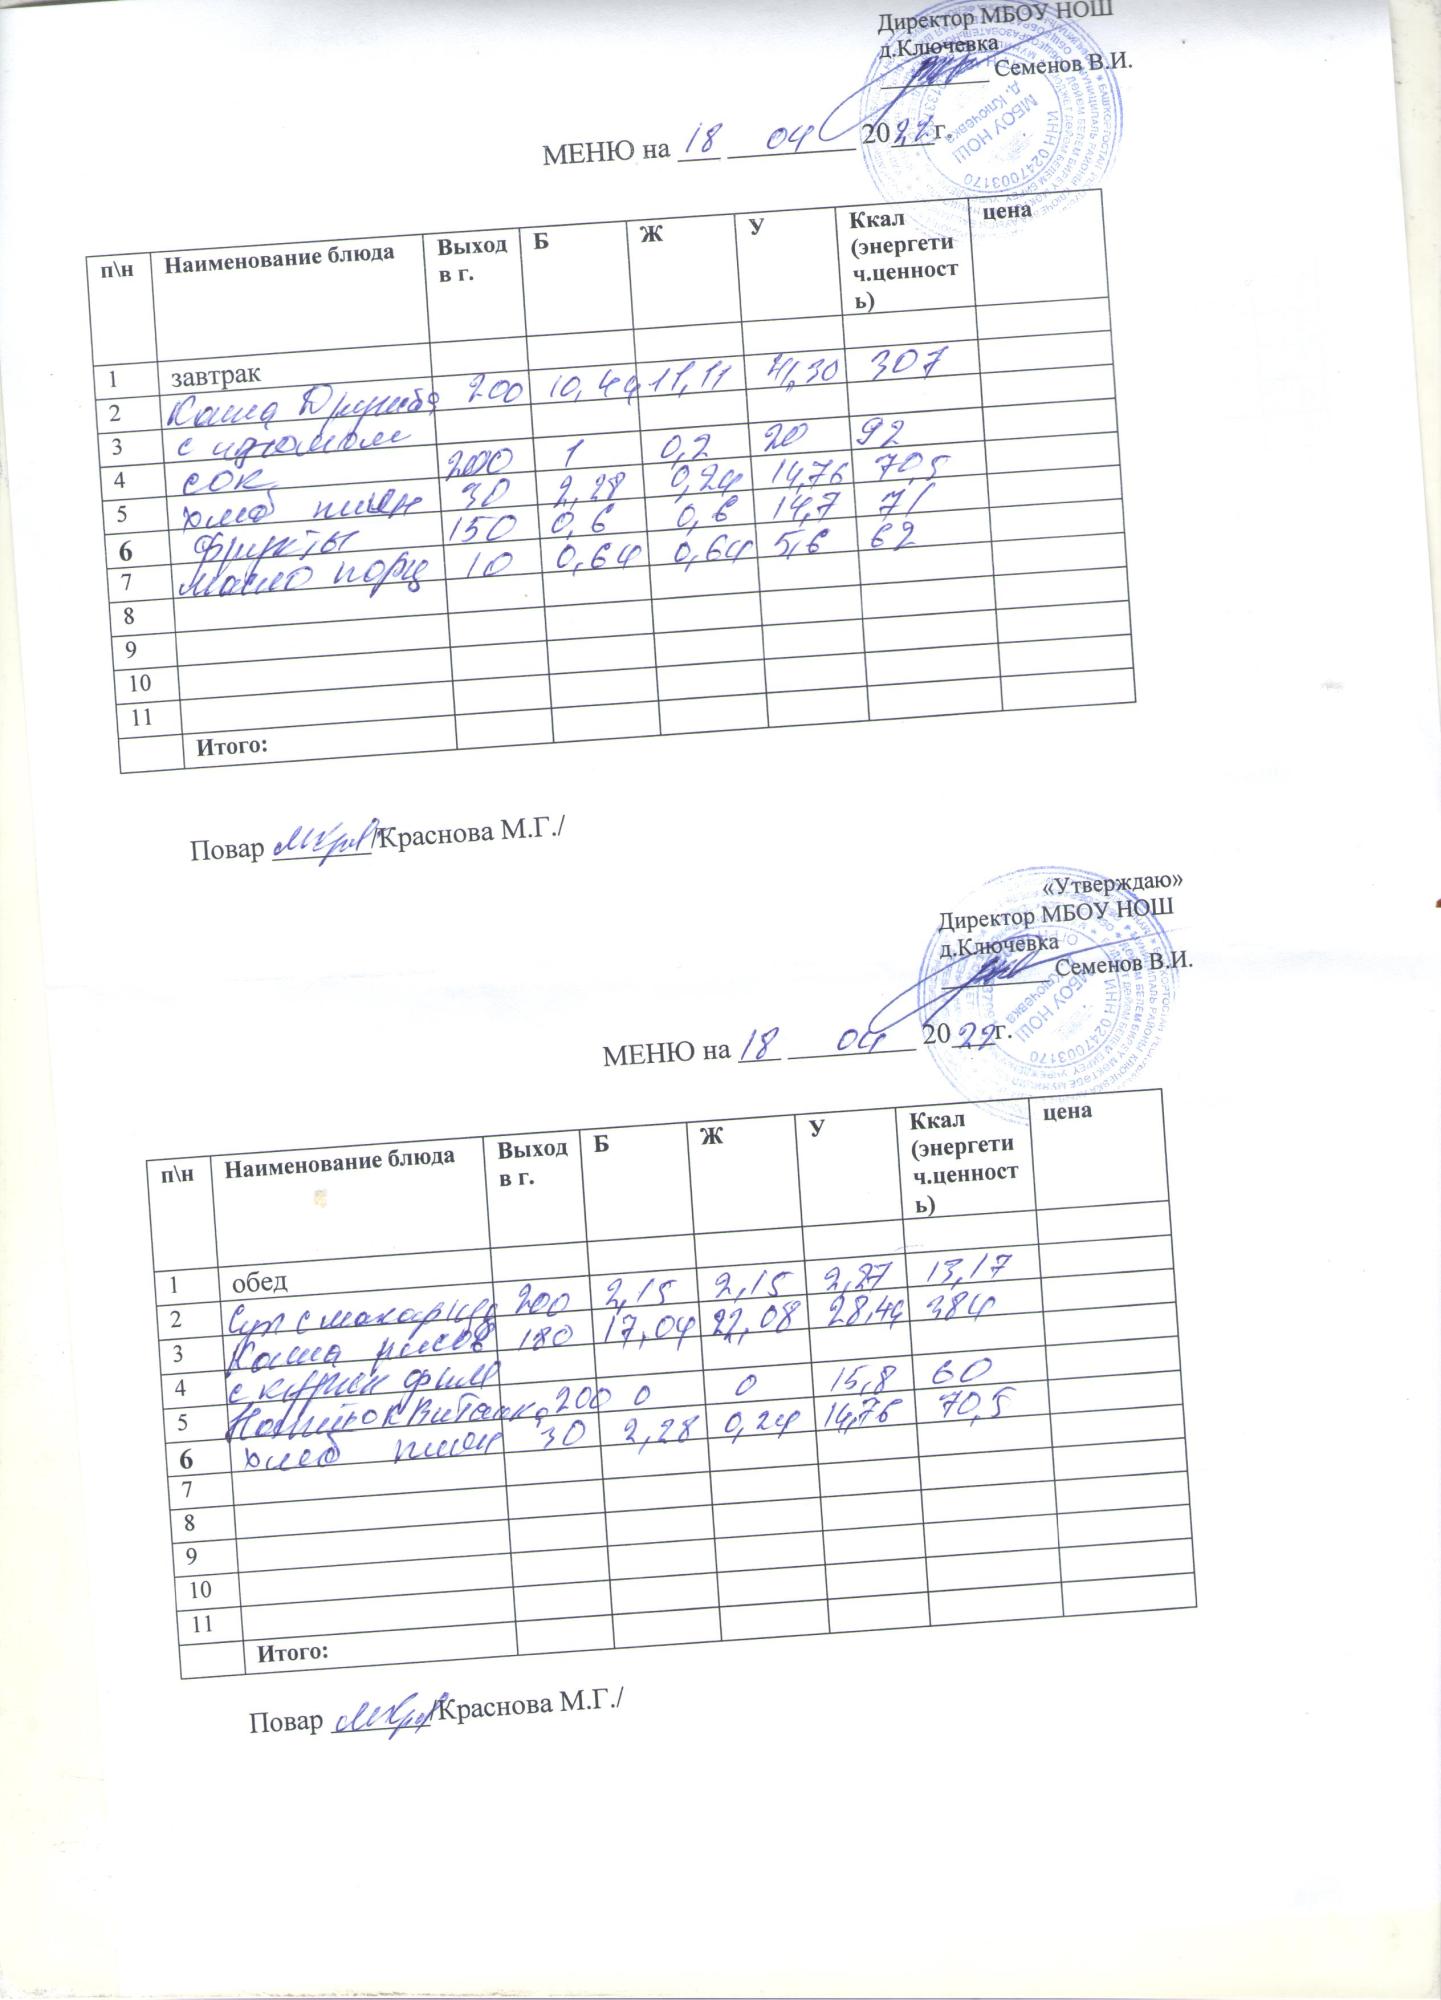 Директор МБОУ НОШ
д.Ключевка
Семенов В.И.
МЕНЮ на 18 04 2022г.
п\н Наименование блюда Выход в г. Б Ж У Ккал (энергети ч.ценност ь) цена
1 завтрак
2 Каша Дружба 200 10,44 11,11 41,30 307
3 с изюмом
4 сок 200 1 0,2 20 92
5 хлеб пшен 30 2,28 0,24 14,76 70,5
6 фрукты 150 0,6 0,6 14,7 71
7 масло порц 10 0,64 0,64 5,6 62
8
9
10
11
Итого:
Повар /Краснова М.Г./
«Утверждаю»
Директор МБОУ НОШ
д.Ключевка
Семенов В.И.
МЕНЮ на 18 04 2022г.
п\н Наименование блюда Выход в г. Б Ж У Ккал (энергети ч.ценност ь) цена
1 обед
2 Суп с макарон 200 2,15 2,15 2,27 13,17
3 Каша рисов 180 17,04 22,08 28,44 384
4 с курин фил
5 Напиток Витошка 200 0 0 15,8 60
6 хлеб пшен 30 2,28 0,24 14,76 70,5
7
8
9
10
11
Итого:
Повар /Краснова М.Г./
МБОУ НОШ
д. Ключевка
ИНН 0247003170
МБОУ НОШ
Ключевка
ИНН 0247003170